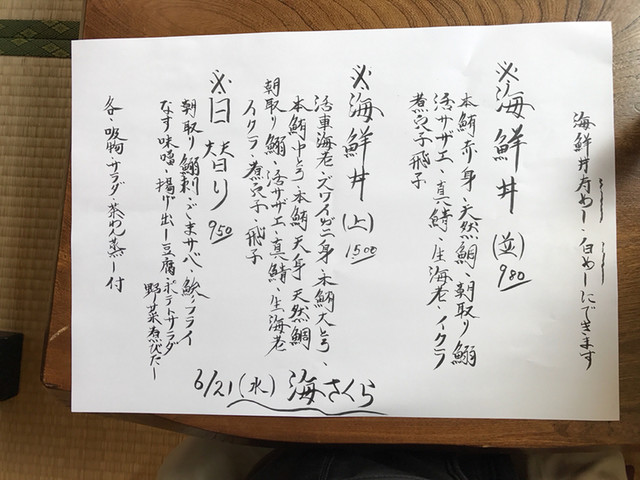 海鮮丼寿めし・白めしにできます
※海鮮丼(並)980
本鮪赤身・天然鯛・朝取り鰯
活サザエ・真鯖・生海老・イクラ
煮穴子・飛子
※海鮮丼(上)1500
活車海老・ズワイガニ身・本鮪大とろ・
本鮪中とろ・本鮪天身・天然鯛
朝取り鰯・活サザエ・真鯖・生海老
イクラ・煮穴子・飛子
※日替り950
朝取り鰯刺・ごまサバ・鯵フライ
なす味噌・揚げ出し豆腐・ポテトサラダ
野菜煮びたし
各・吸物・サラダ・茶わん蒸し付
6/21(水)海さくら